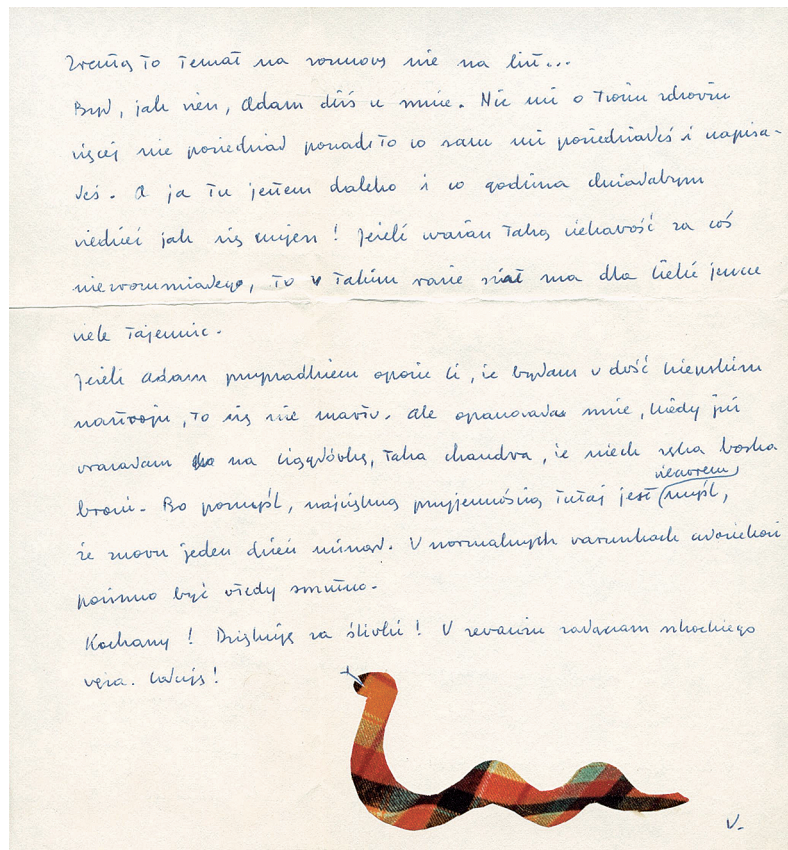 Zresztą to temat na rozmowę nie na list...
Był, jak wiesz, Adam dziś u mnie. Nic mi o Twoim zdrowiu
więcej nie powiedział ponad to co sam mi powiedziałeś i napisa-
łeś. A ja tu jestem daleko i co godzina chciałabym
wiedzieć jak się czujesz! Jeżeli uważasz taką ciekawość za coś
niezrozumiałego, to w takim razie świat ma dla Ciebie jeszcze
wiele tajemnic.
Jeżeli Adam przypadkiem opowie Ci, że byłam w dość kiepskim
nastroju, to się nie martw. Ale opanowała mnie, kiedy już
wracałam na taka chandra, że niech ręka boska
broni. Bo pomyśl, największą przyjemnością tutaj jest wieczorem myśl,
że znowu jeden dzień minął. W normalnych warunkach człowiekowi
powinno być wtedy smutno.
Kochany! Dziękuję za śliwki! W rewanżu załączam szkockiego
węża. Całuję!
W.